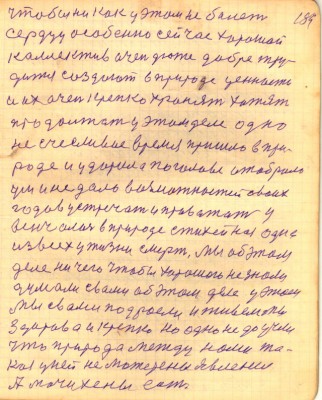 чтобы ни как у этом не балет 199
сердцу особенно сейчас хароший
каллектив очен дюже добре тру-
дится создают в природе ценность
и их очен крепко хронят хотят
продолжат у этом деле одно
не счесливае время пришло в при-
роде и ударила по голове отобрала
ум и не дало возможностей своих
годов устречат и праважат у
венчалая в природе стихейная одна
из всех у жизни смерт, мы об этом
деле ни чего чтобы харошого не знали
думали свами об этом деле у этом
мы свами подросли и живем мы
здорова и крепко но одно не доучли
что природа между нами та-
кая у ней не може явлении
А мачихены ест.